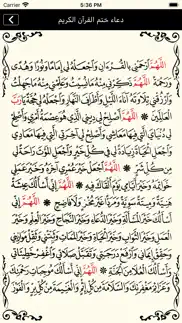 5:36 PM
دعاء ختم القرآن الكريم
اللَّهُمَّ ارْحَمْنِي بِالْقُرْءَانِ وَاجْعَلْهُ لِي إِمَامًا وَنُورًا وَهُدًى
وَرَحْمَةً اللَّهُمَّ ذَكِّرْنِي مِنْهُ مَا نَسِيتُ وَعَلِّمْنِي مِنْهُ مَا جَهِلْتُ
وَارْزُقْنِي تِلَاوَتَهُ آنَاءَ اللَّيْلِ وَأَطْرَافَ النَّهَارِ وَاجْعَلْهُ لِي حُجَّةً يَارَبَّ
الْعَالَمِينَ اللَّهُمَّ أَصْلِحْ لِي دِينِي الَّذِي هُوَ عِصْمَةُ أَمْرِي وَأَصْلِحْ
لِي دُنْيَايَ الَّتِي فِيهَا مَعَاشِي وَأَصْلِحْ لِي آخِرَتِي الَّتِي فِيهَا مَعَادِي
وَاجْعَلِ الْحَيَاةَ زِيَادَةً لِي فِي كُلِّ خَيْرٍ وَاجْعَلِ الْمَوْتَ رَاحَةً لِي
مِنْ كُلِّ شَرٍّ اللَّهُمَّ اجْعَلْ خَيْرَ عُمْرِي آخِرَهُ وَخَيْرَ عَمَلِي
خَوَاتِمَهُ وَخَيْرَ أَيَّامِي يَوْمَ أَلْقَاكَ فِيهِ اللَّهُمَّ إِنِّي أَسْأَلُكَ عِيشَةً
هَنِيَّةً وَمِيتَةً سَوِيَّةً وَمَرَدًّا غَيْرَ مُخْزٍ وَلَا فَاضِحٍ اللَّهُمَّ إِنِّي
أَسْأَلُكَ خَيْرَ الْمَسْأَلَةِ وَخَيْرَ الدُّعَاءِ وَخَيْرَ النَّجَاحِ وَخَيْرَ الْعِلْمِ وَخَيْرَ
الْعَمَلِ وَخَيْرَ الثَّوَابِ وَخَيْرَ الْحَيَاةِ وَخَيْرَ الْمَمَاتِ وَثَبِّتْنِي وَثَقِّلْ مَوَازِينِي
وَحَقِّقْ إِيمَانِي وَارْفَعْ دَرَجَتِي وَتَقَبَّلْ صَلَاتِي وَاغْفِرْ خَطِيئَاتِي
وَأَسْأَلُكَ الْعُلَا مِنَ الْجَنَّةِ اللَّهُمَّ إِنِّي أَسْأَلُكَ مُوجِبَاتِ رَحْمَتِكَ
وَعَزَائِمَ مَغْفِرَتِكَ وَالسَّلَامَةَ مِنْ كُلِّ إِثْمٍ وَالْغَنِيمَةَ مِنْ كُلِّ بِرٍّ وَالْفَوْزَ